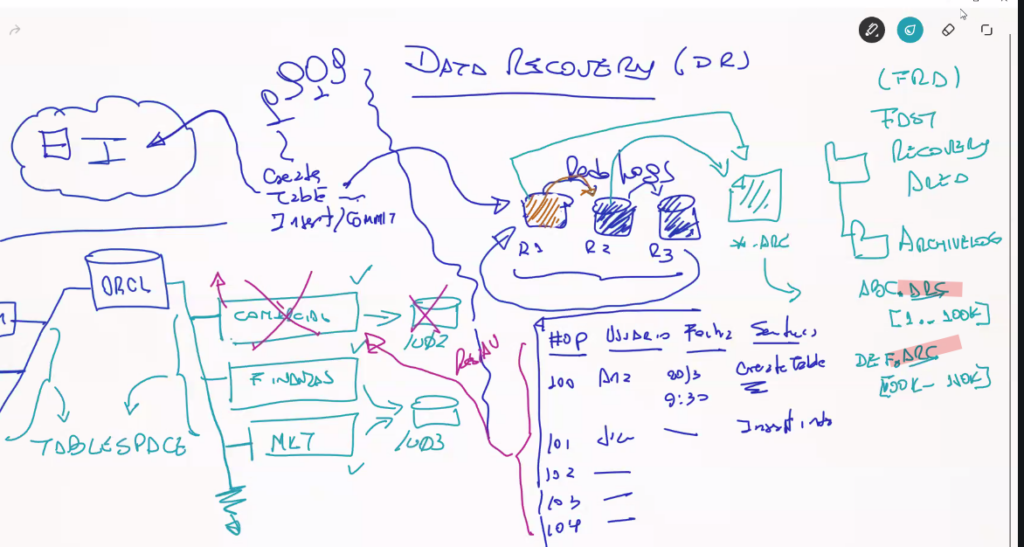 DATA RECOVERY (DR)
(FRD)
FAST
RECOVERY
AREA
Create
Table
Insert/Commit
Redo Logs
R1
R2
R3
*.ARC
ARCHIVELOG
ORCL
COMERCIAL
/U02
FINANZAS
MKT
/U03
TABLESPACE
Redo
#OP Usuario Fecha Sentencias
100 Ana 20/3 Create Table
9:30
101 Insert into
102
103
104
ABC.ARC
[1..100K]
DEF.ARC
[100K- 110K]